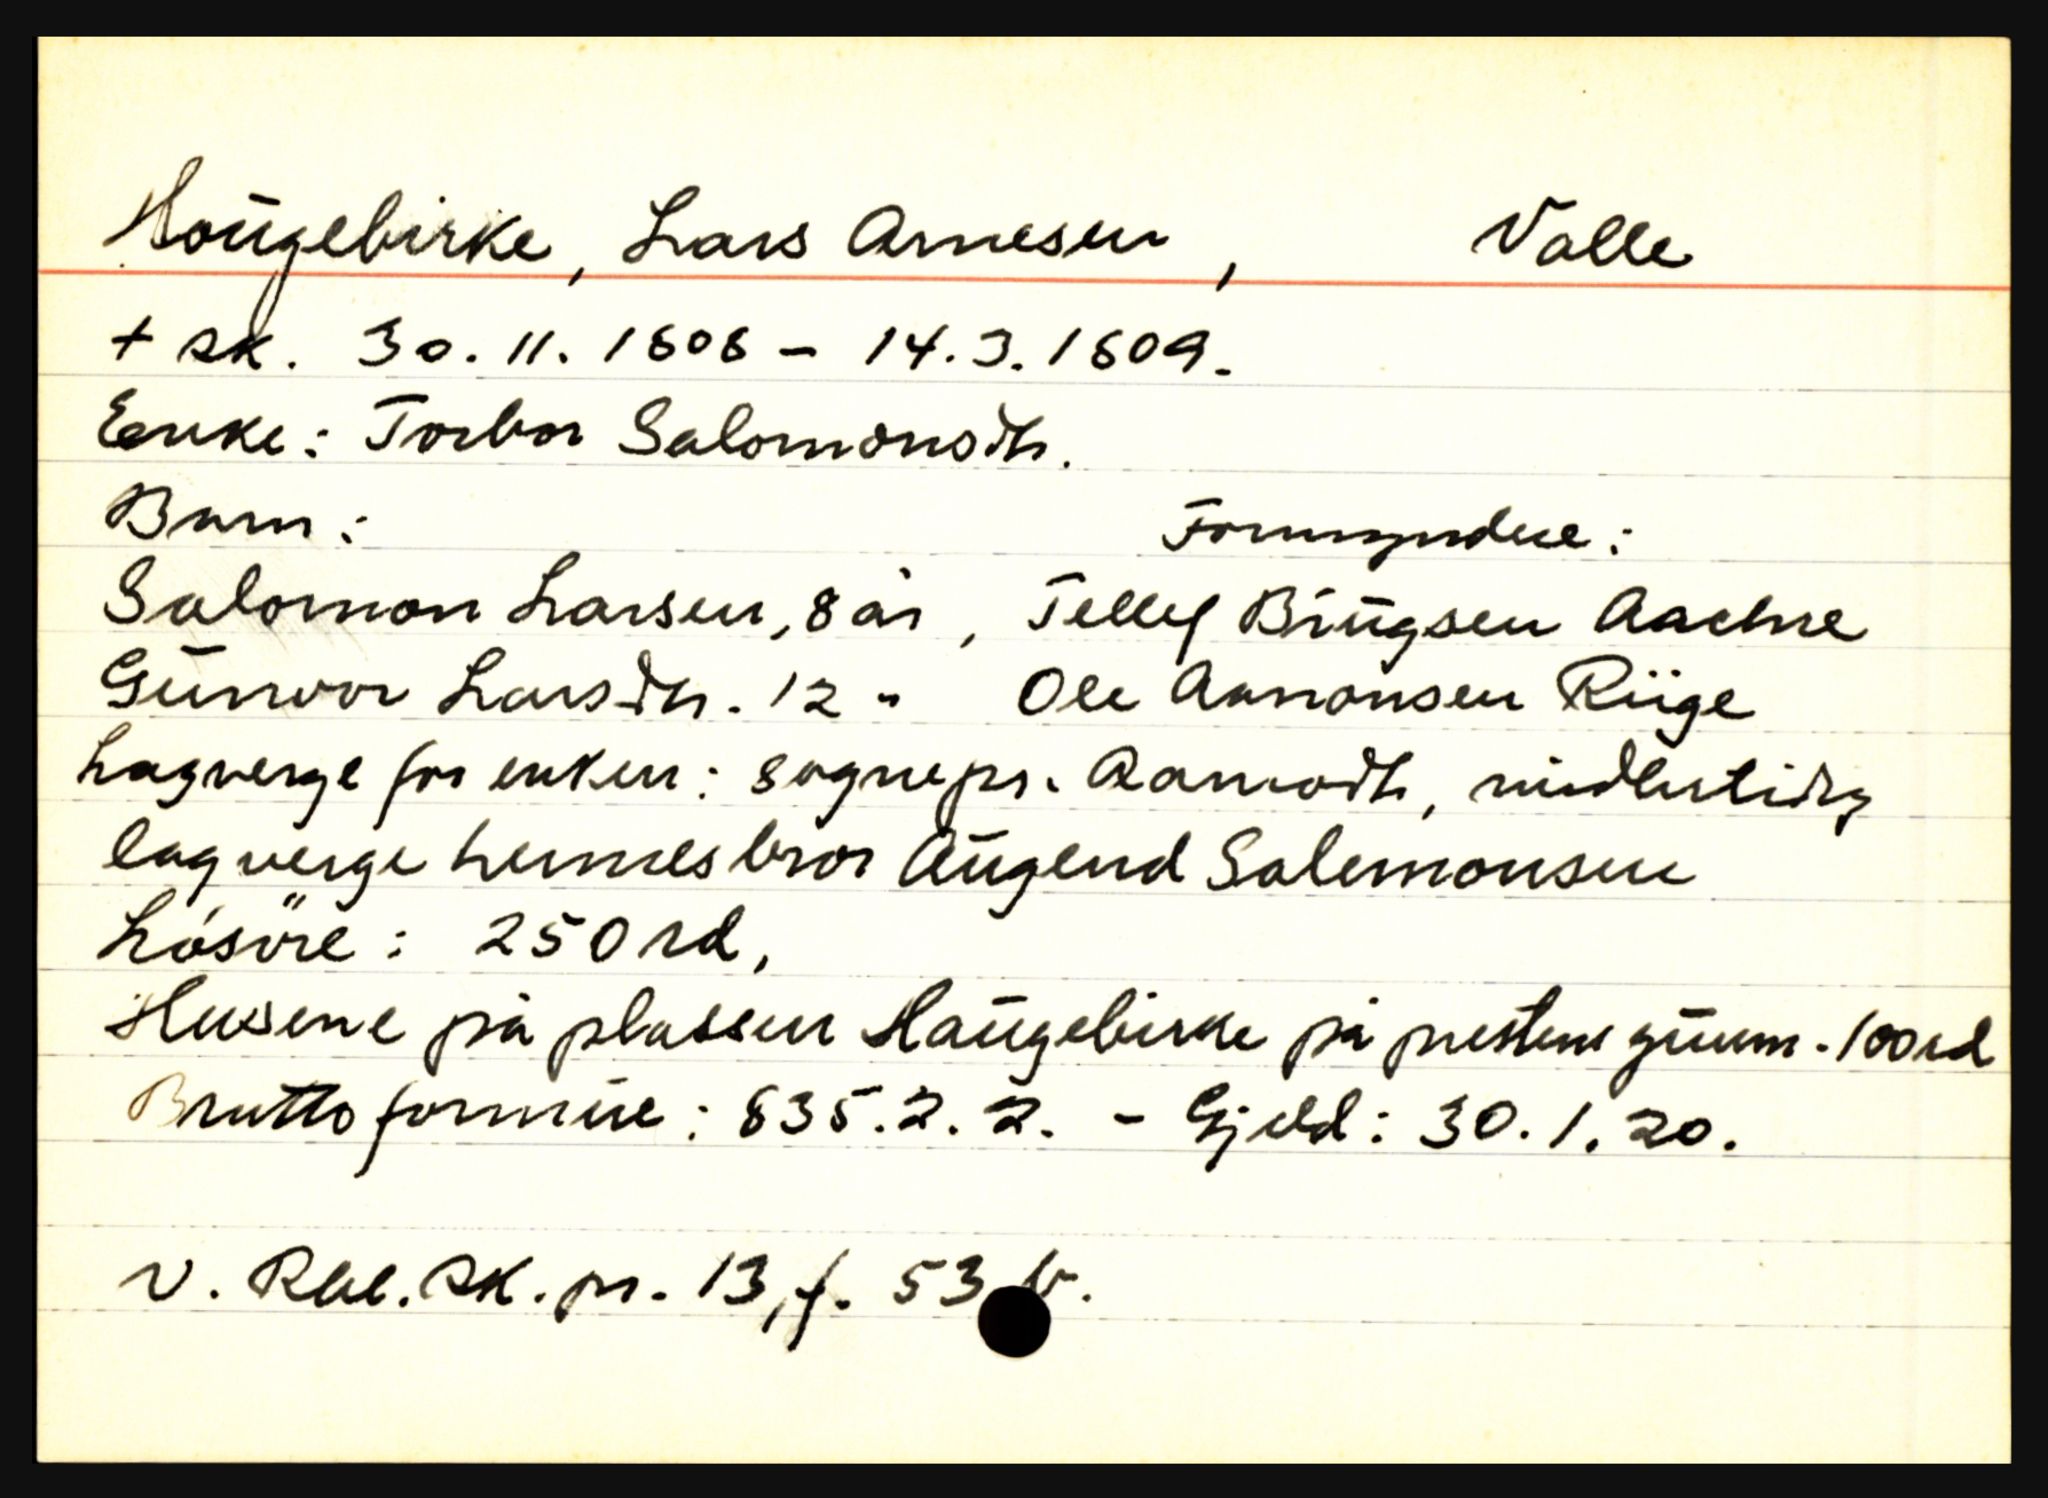 Haugebirke, Lars Arnesen, Valle
+ sk. 30.11.1808 - 14.3.1809.
Enke: Torbor Salomonsdtr.
Barn: Formyndere:
Salomon Larsen, 8 år, Tellef Biugsen Aackre
Gunvor Larsdtr. 12 " Ole Aanonsen Riige
Lagverge for enken: sognepr. Aamodt, midlertidig
lagverge hennes bror Augend Salemonsen
Løsöre: 250 rd,
Husene på plassen Haugebirke på prestens grunn. 100 rd
Brutto formue: 835.2.2. - Gjeld: 30.1.20.
V. Rbl. sk. pr. 13, f. 53 b.